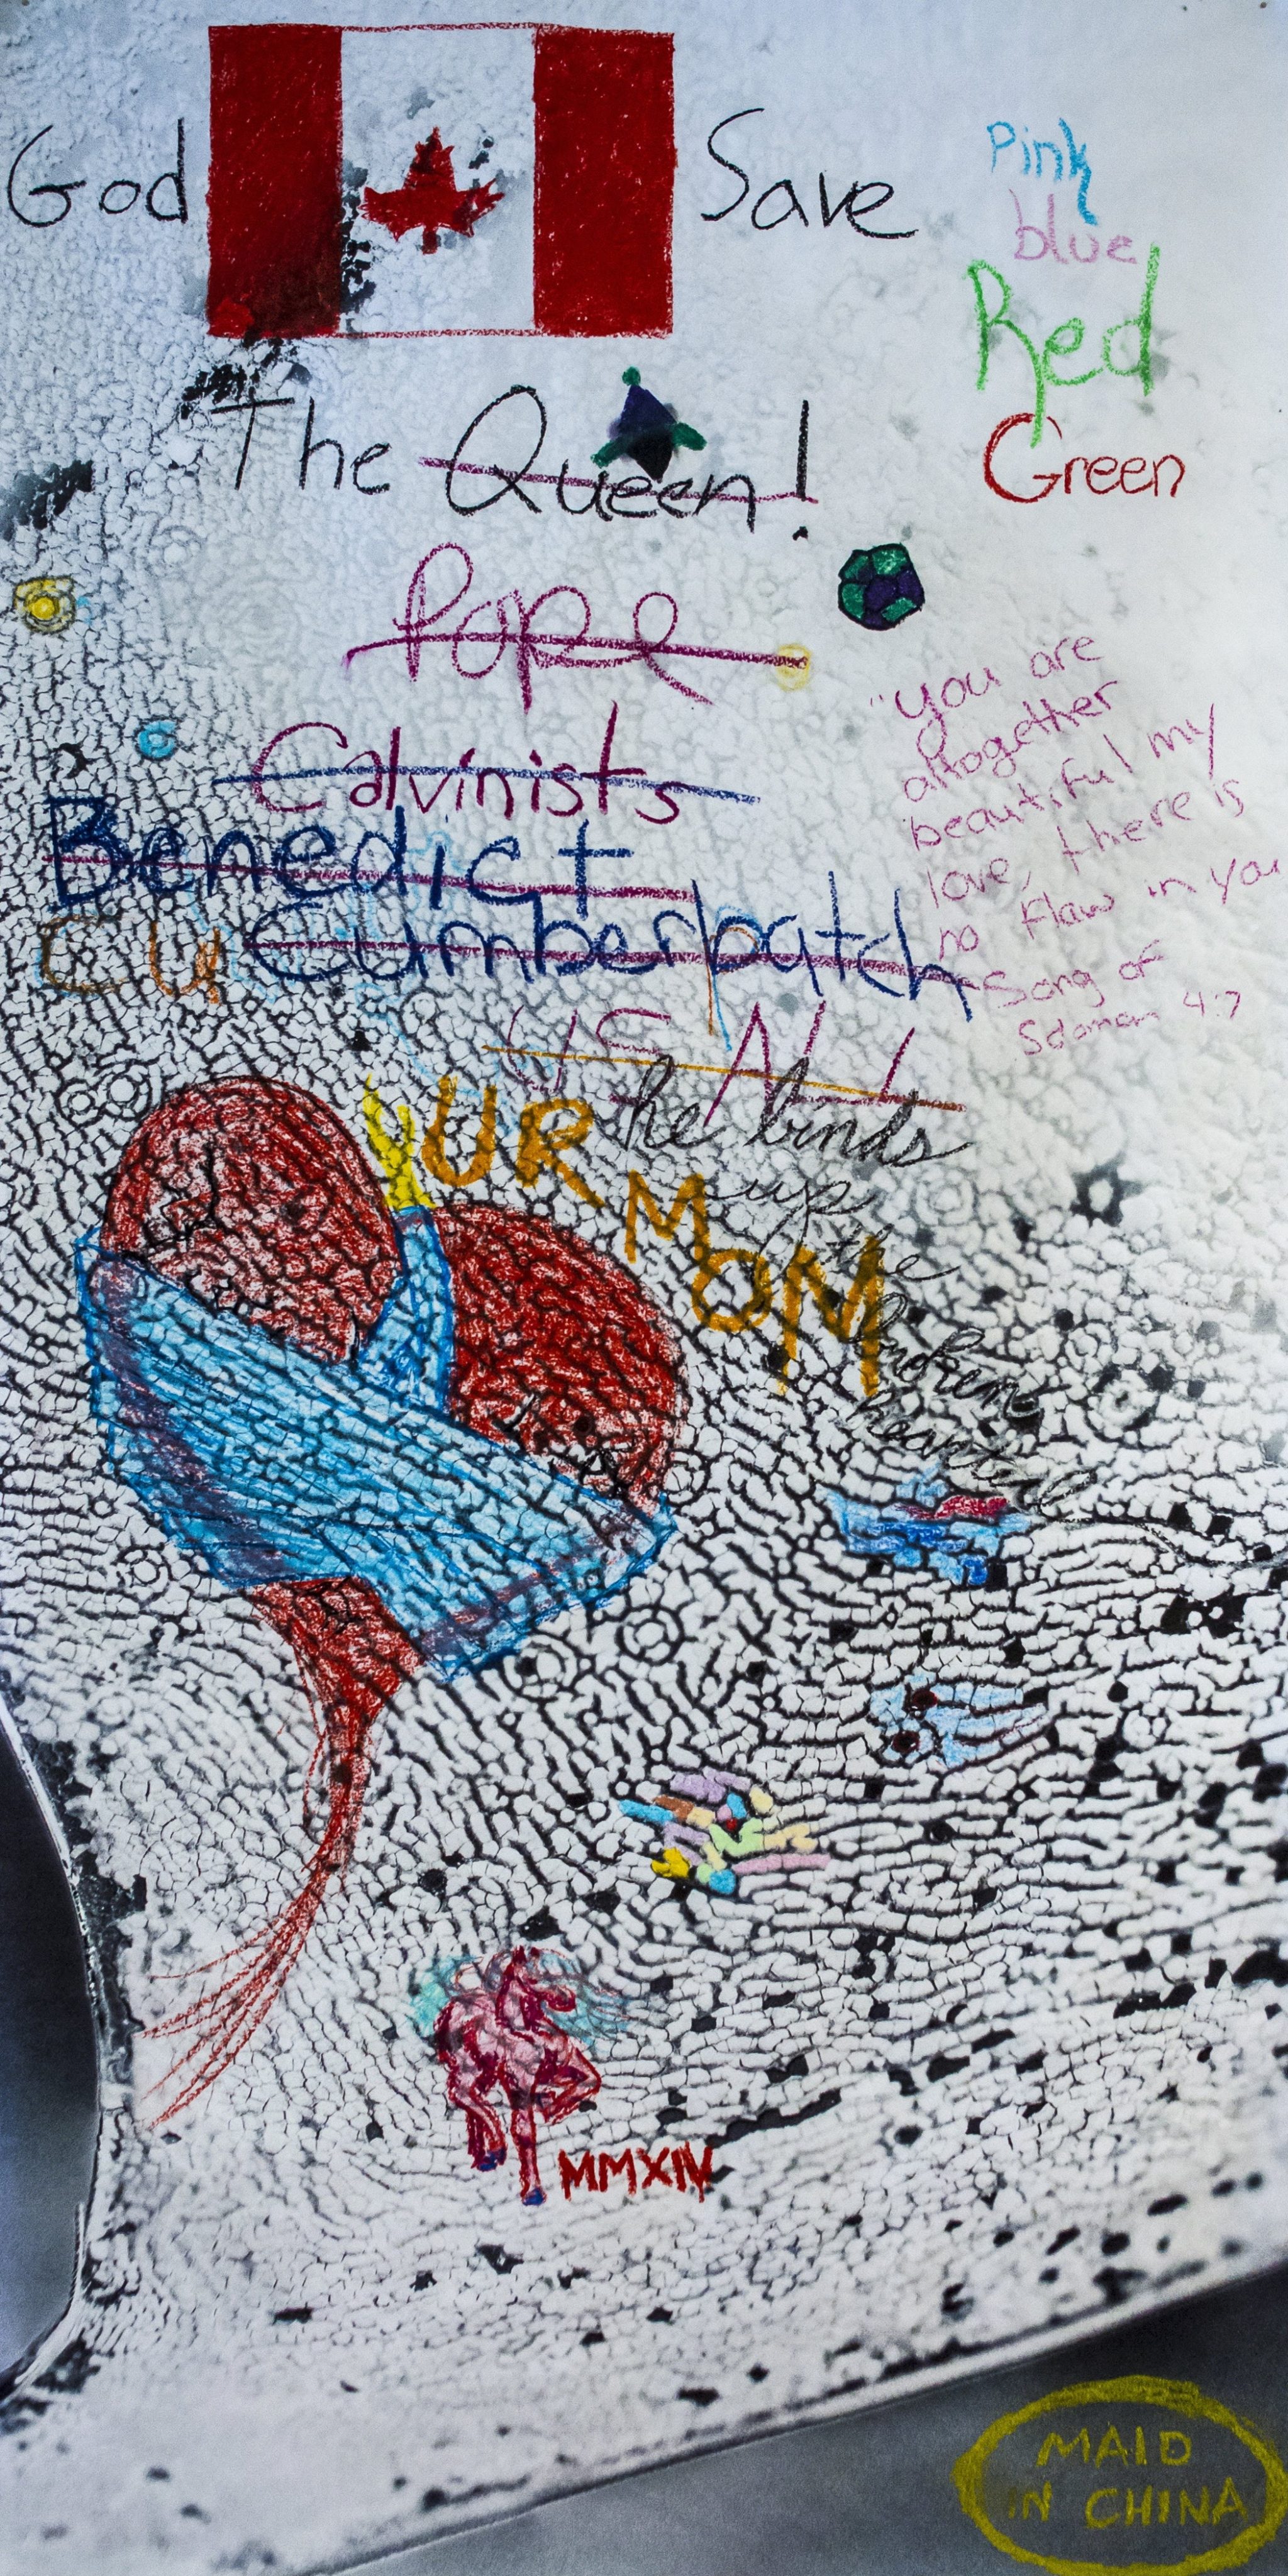 God Save
The Queen!
Pope
Calvinists
Benedict
Cumberpatch
CU
US All
UR
MOM
he binds
up
the
broken
hearted
Pink
blue
Red
Green
"you are
altogether
beautiful my
love, there is
no flaw in you
Song of
Solomon 4:7
MMXIV
MAID
IN CHINA